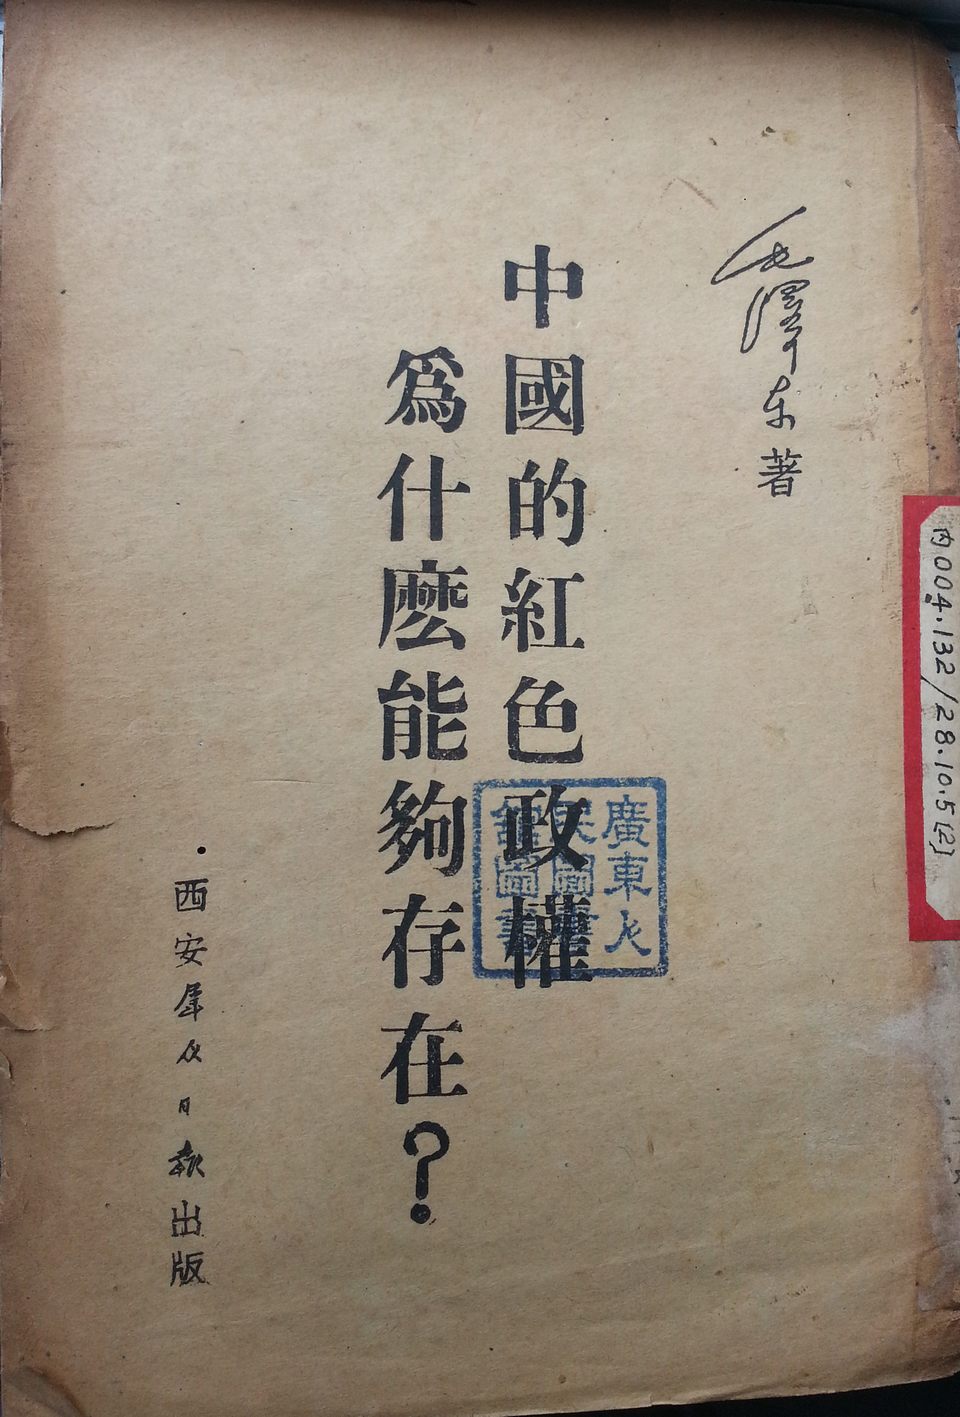 毛澤东著
中國的紅色政權
爲什麽能夠存在?
·西安羣众日報出版
廣東人
民圖書
館圖書
内004.132/28.10.5(2)